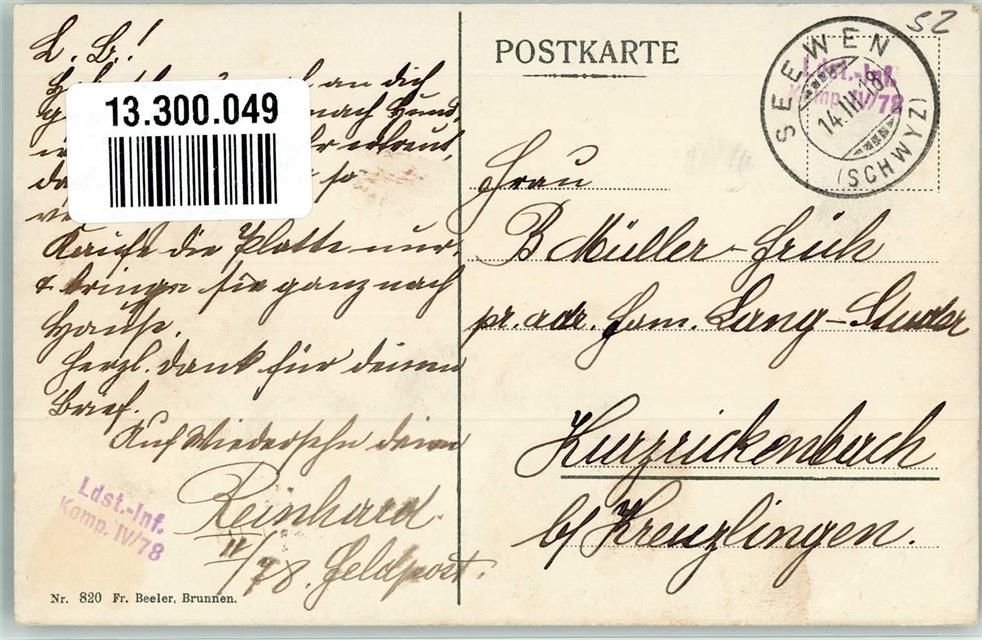 L. B.!
an dich
nach Hund
so
Kaufe die Platte nur,
& bringe sie ganz nach
Hause.
Herzl. Dank für deinen
Brief.
Auf Wiedersehn deinen
Reinhard.
IV/78. Feldpost.
Ldst.-Inf.
Komp. IV/78
Nr. 820 Fr. Beeler, Brunnen.
13.300.049
POSTKARTE
52
Ldst.-Inf.
Komp. IV/78
SEEWEN
14.III.18
(SCHWYZ)
Frau
B Müller-Früh
pr. adr. Fam. Lang-Studer
Kurzrickenbach
b/ Kreuzlingen.